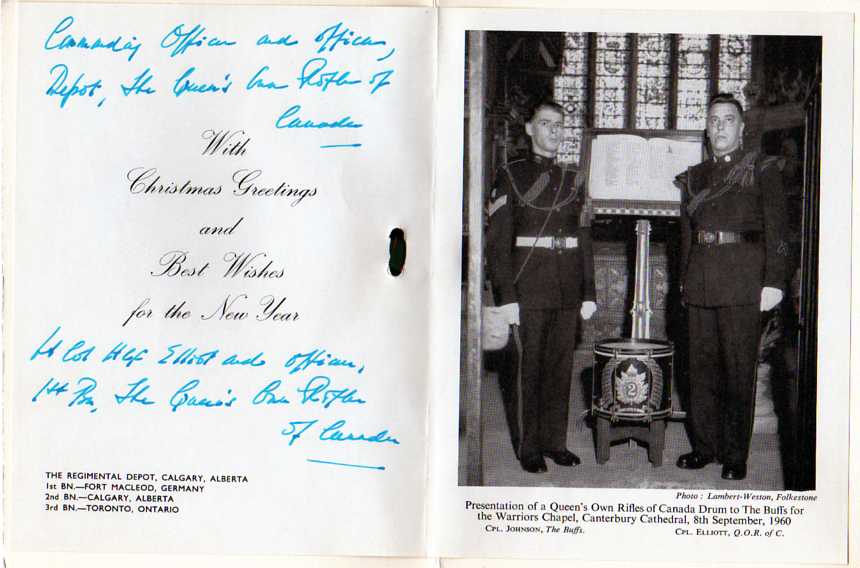 Commanding Officer and officers,
Depot, The Queen's Own Rifles of
Canada
With
Christmas Greetings
and
Best Wishes
for the New Year
Lt Col HGF Elliot and officers,
1st Bn, The Queen's Own Rifles
of Canada
THE REGIMENTAL DEPOT, CALGARY, ALBERTA
1ST BN.—FORT MACLEOD, GERMANY
2ND BN.—CALGARY, ALBERTA
3RD BN.—TORONTO, ONTARIO
2
Photo : Lambert-Weston, Folkestone
Presentation of a Queen's Own Rifles of Canada Drum to The Buffs for
the Warriors Chapel, Canterbury Cathedral, 8th September, 1960
CPL. JOHNSON, The Buffs. CPL. ELLIOTT, Q.O.R. of C.